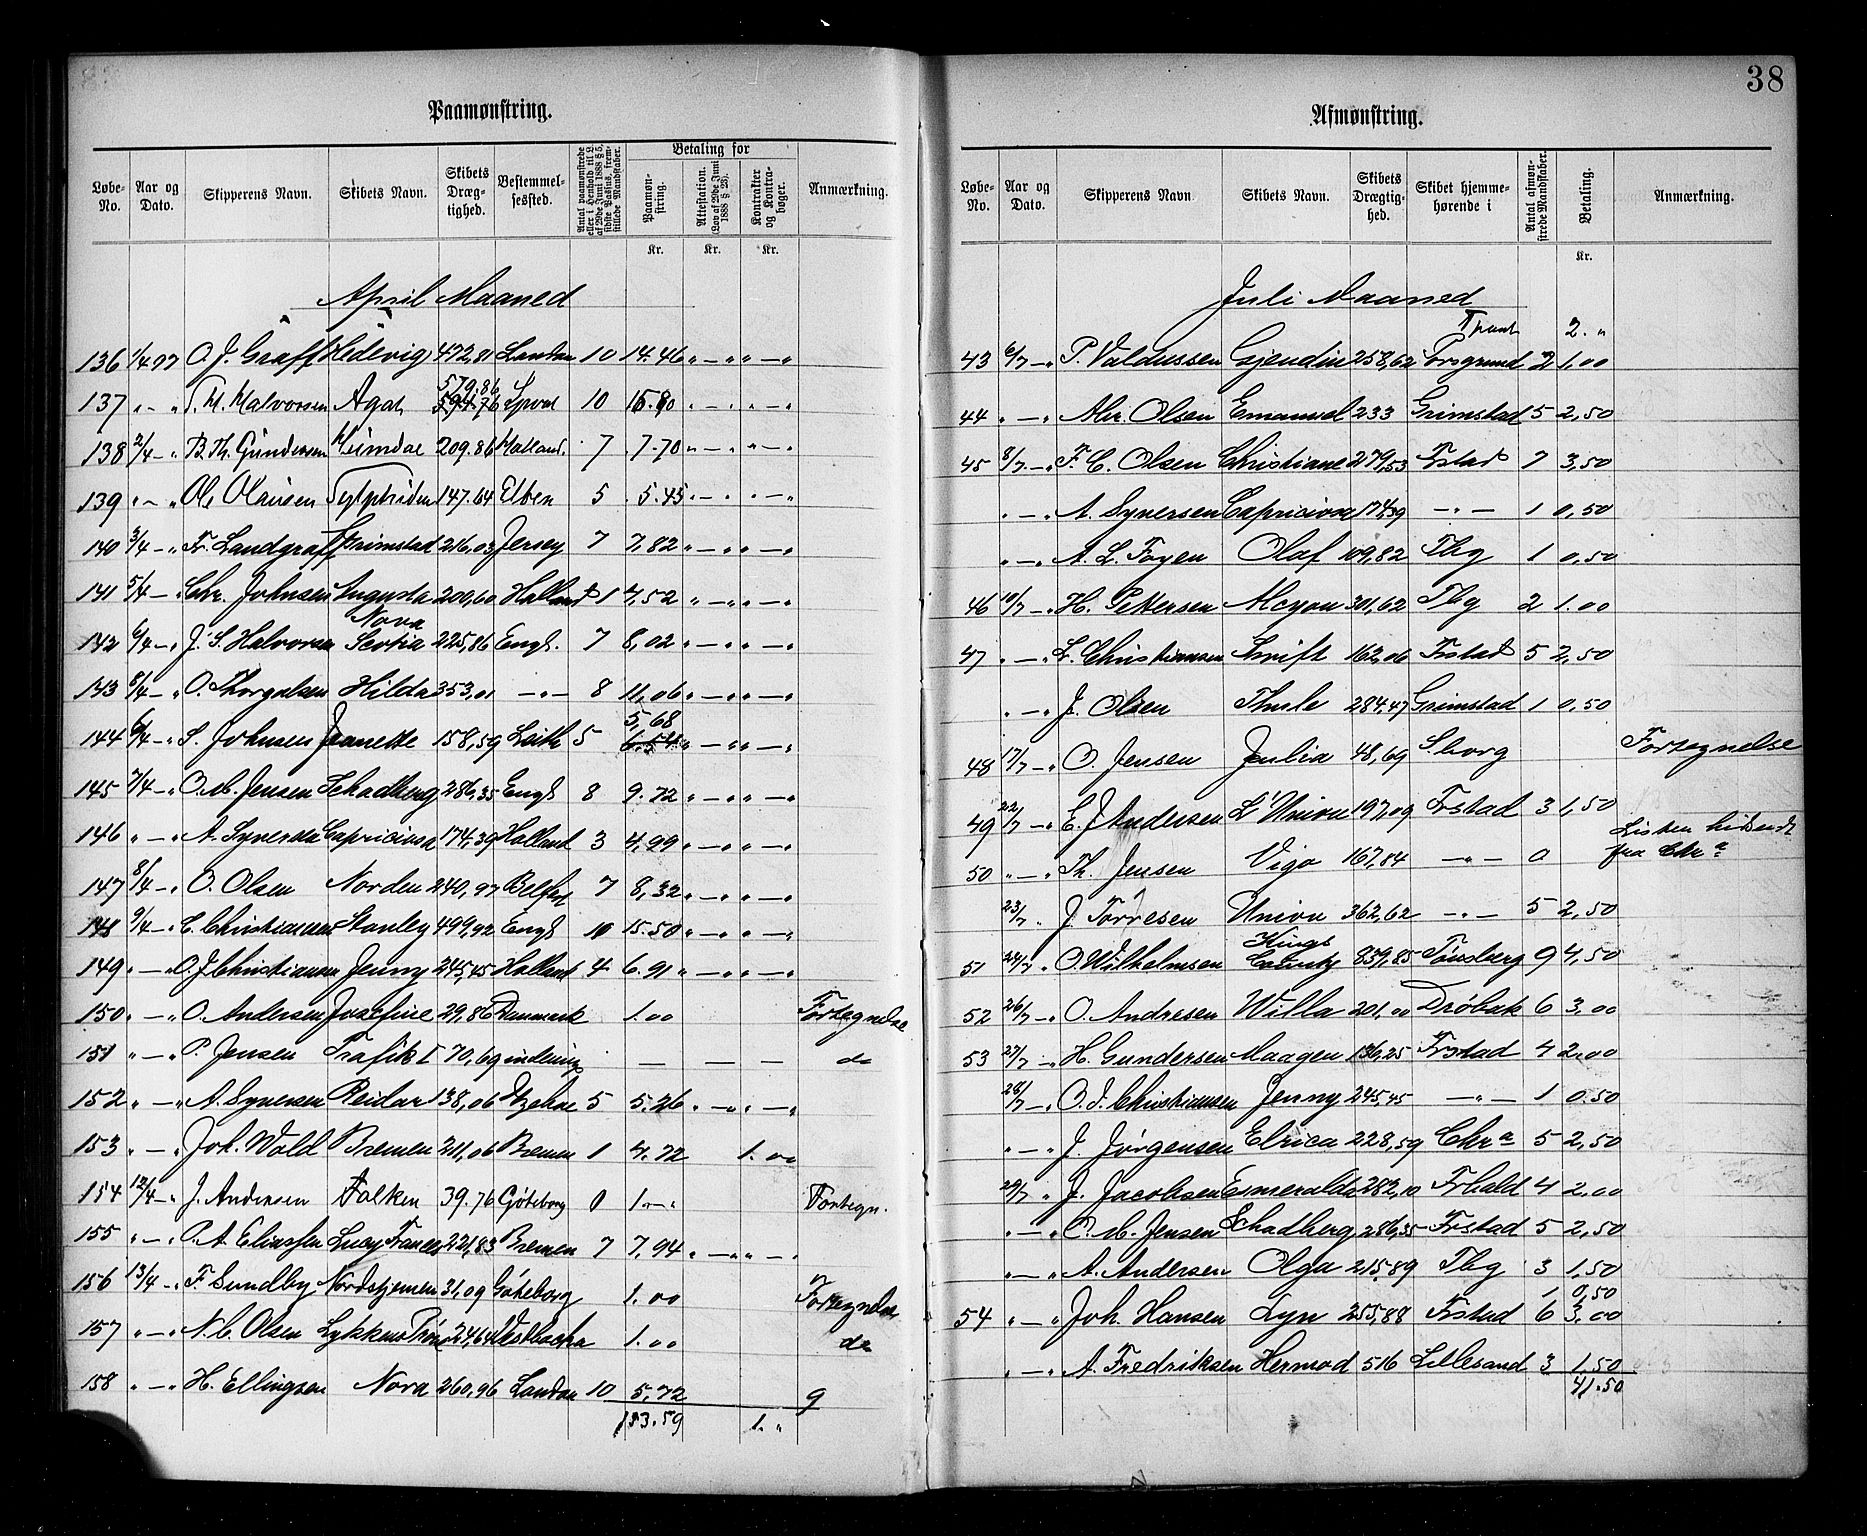 38
Paamønstring.
Løbe-No. Aar og Dato. Skipperens Navn. Skibets Navn. Skibets Dræg-tighed. Bestemmel-sessted. Antal paamønstrede eller i Henhold til L. af 29de Juni 1888 § 5, sidste Passus, frem-stillede Mandskaber. Betaling for Paamøn-string. Attestation. (Lov af 29de Juni 1888 § 23). Kontrakter og Kontra-bøger. Anmærkning.
Kr. Kr. Kr.
April Maaned
136 1/4 97 O. J. Graff Hedevig 472,81 London 10 14.46 " — " " — "
137 " — " T. M. Halvorsen Agat 579.86 594.76 Lpool 10 15.80 " — " " — "
138 2/4 — " B. Th. Gundersen Heimdal 209.86 Holland. 7 7.70 " — " " — "
139 " — " Ole Olausen Sylphiden 147.64 Elben 5 5.45 " — " " — "
140 3/4 — " Fr. Landgraff Grimstad 216,03 Jersey 7 7,82 " — " " — "
141 5/4 — " Chr. Johnsen Augusta 200,60 Holland 1 4,52 " — " " — "
142 6/4 — " J. S. Halvorsen Nova Scotia 225,86 Engl. 7 8,02 " — " " — "
143 8/4 — " O. Thorgalsen Hilda 353,01 — " — 8 11,06 " — " " — "
144 6/4 — " S. Johnsen Jeanette 158,59 Leith 5 5,68 6.54 " — " " — "
145 7/4 — " O. M. Jensen Schadberg 286,35 Engl 8 9.72 " — " " — "
146 " — " A. Syversen Capriciosa 174,39 Holland 3 4.99 " — " " — "
147 8/4 — " O. Olsen Norden 240,97 Belfast 7 8,32 " — " " — "
148 9/4 — " C. Christiansen Stanley 499,92 Engl 10 15.50 " — " " — "
149 " — " O. J. Christiansen Jenny 245,45 Holland 4 6.91 " — " " — "
150 " — " O. Andersen Josefine 29,86 Danmark 1.00 Fortegnelse
151 " — " P. Jensen Trafik I 70,69 indenrigs — — — do
152 " — " A. Syversen Reidar 138,06 Itzehoe 5 5.26 " — " " — "
153 " — " Joh. Wold Bremen 211,06 Bremen 1 4.72 1.00
154 12/4 — " J. Andersen Falken 39.76 Göteborg 0 1. — " Fortegn.
155 " — " P. A. Eliassen Lucy Frances 221,83 Bremen 7 7,94 " — " " — "
156 13/4 — " F. Sundby Nordstjernen 31,09 Göteborg 1.00 Fortegnelse
157 " — " N. C. Olsen Lykkens Prøve 24,64 1.00 do
158 " — " H. Ellingsen Nora 260,96 London 10 5,72 9
133.59 1. "
Afmønstring.
Løbe-No. Aar og Dato. Skipperens Navn Skibets Navn. Skibets Drægtig-hed. Skibet hjemme-hørende i Antal afmøn-strede Mandskaber. Betaling. Anmærkning.
Kr.
Juli Maaned
Transp 2. "
43 6/7 — " P. Valdussen Gjendin 258,62 Porsgrund 2 1,00
44 " — " Alex. Olsen Emanuel 233 Grimstad 5 2,50
45 8/7 — " F. C. Olsen Christiane 279,53 Frstad 7 3,50
" — " A. Syversen Capriciosa 174,39 — " — 1 0,50
" — " A. L. Foyen Olaf 109,82 Tbg 1 0,50
46 10/7 — " H. Pettersen Alcyon 301,62 Tbg 2 1.00
47 " — " L. Christiansen Swift 162,06 Frstad 5 2,50
" — " J. Olsen Thule 284,47 Grimstad 1 0,50
48 17/7 — " O. Jensen Julia 48,69 S.borg Fortegnelse
49 22/7 — " E. J. Andersen L'Union 197,09 Frstad 3 1,50
50 " — " Th. Jensen Vigo 167,84 — " — 0 Listen hidsendt fra Chr.a
23/7 " J. Torresen Union 362,62 — " — 5 2,50
51 24/7 " O. Wilhelmsen Kings County 859,85 Tønsberg 9 4,50
52 26/7 — " O. Andresen Willa 201,00 Drøbak 6 3,00
53 27/7 — " H. Gundersen Maagen 136,25 Frstad 4 2,00
28/7 — " O. J. Christiansen Jenny 245,45 — " — 1 0.50
" — " J. Jørgensen Elrica 228,59 Chr.a 5 2,50
29/7 " J. Jacobsen Esmeralda 282,10 Frhald 4 2,00
" — " O. M. Jensen Schadberg 286,35 Frstad 5 2,50
" — " A. Andersen Olga 215,89 Tbg 3 1,50
1 0,50
54 " — " Joh. Hansen Lyn 255,88 Frstad 6 3,00
" — " A. Fredriksen Hermod 516 Lillesand 3 1,50
41.50